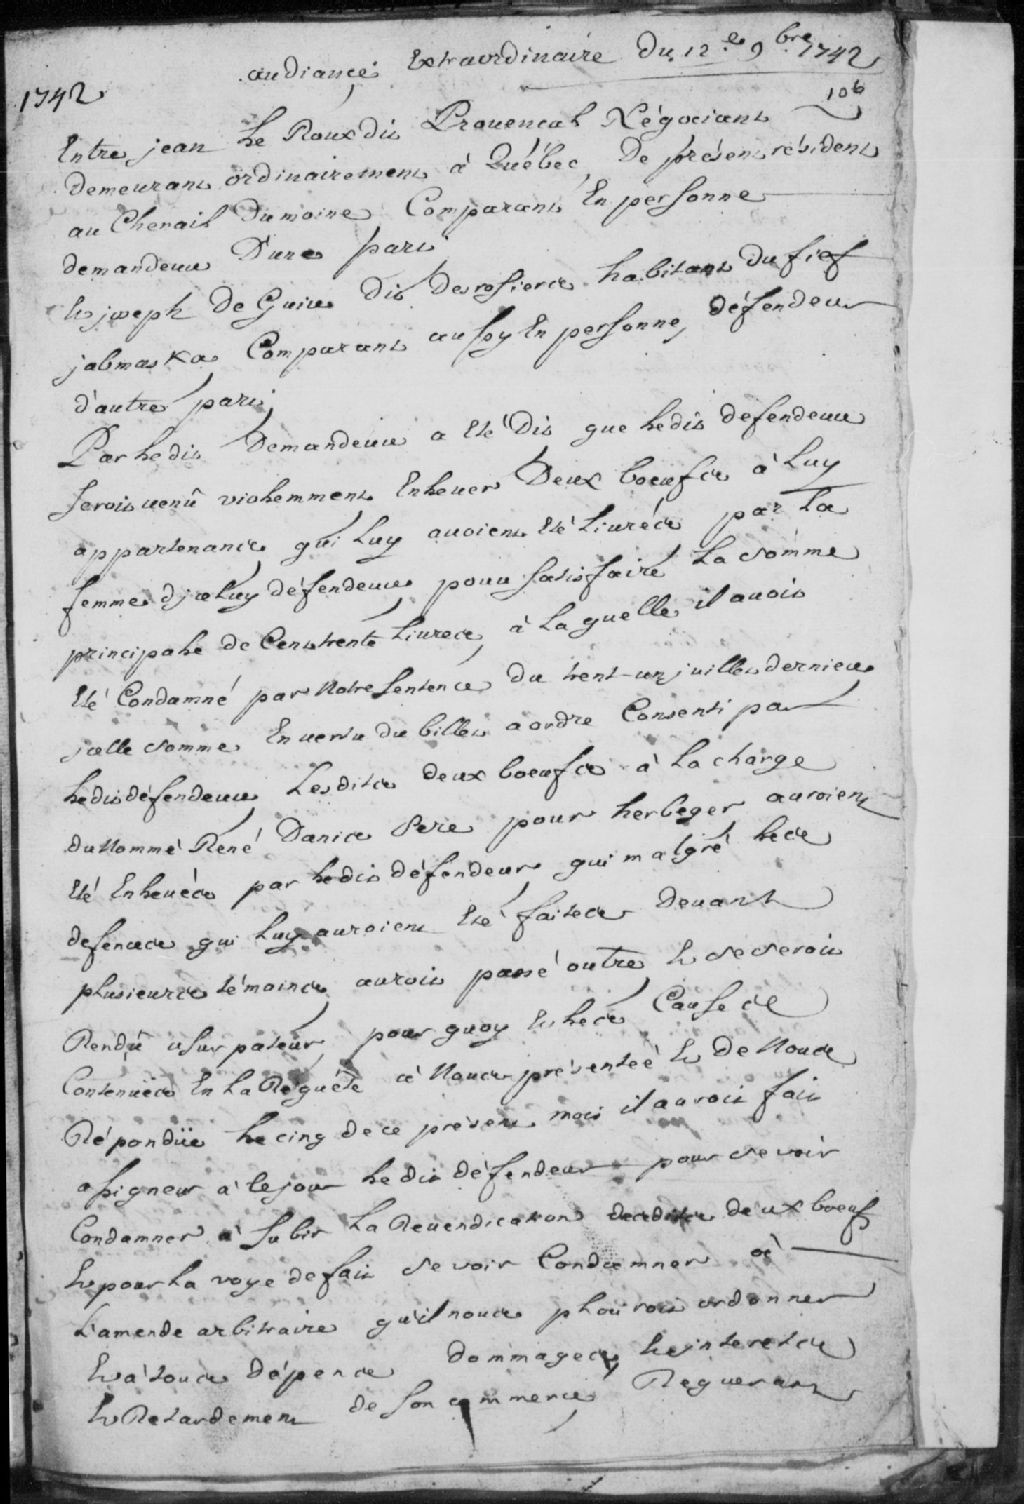 audiance Extraordinaire Du 12e 9bre 1742
1742
106
Entre jean Le Roux dit Prouencal Négociant
demeurant ordinairement à Québec, De présent résident
au Chenail Dumoine Comparant En personne
demandeur D'une part
Et joseph De Guire dit Desrosiers habitant du fief
jabmaska Comparant aussy En personne, défendeur
d'autre part,
Par Ledit Demandeur a Eté Dit que Ledit defendeur
Seroit uenû violemment Enleuer Deux boeufs à Luy
appartenants qui Luy auoient Eté Liurés par La
femme d'jceluy défendeur pour Satisfaire La somme
principale de Cent trente Liures, à Laquelle il auoit
Eté Condamné par Notre Sentence du trent-un juillet dernier
jcelle somme En uertu du billet a ordre Consenti par
Ledit défendeur, Lesdits deux boeufs à La charge
du Nommé René Danis Pere pour herbeger auroient
Eté Enleués par Ledit défendeur, qui malgré Les
defences qui Luy auroient Eté faites deuant
plusieurs témoins auroit passé outre, Et se seroit
Rendû usurpateur, pour quoy Et Les Causes
Contenuës En La Réquête à Nous présenteé Et De Nous
Répondüe Le cinq de ce present mois il auroit fait
assigner à ce jour Ledit défendeur pour se voir
Condamner à Subir La Reuendication desdits deux boeufs
Et pour La voye de fait se voir Condamner à
L'amende arbitraire qu'il nous plairoit ordonner
Et à tous dépens dommages, Et interets
Et Retardement de Son commerce, Requerant